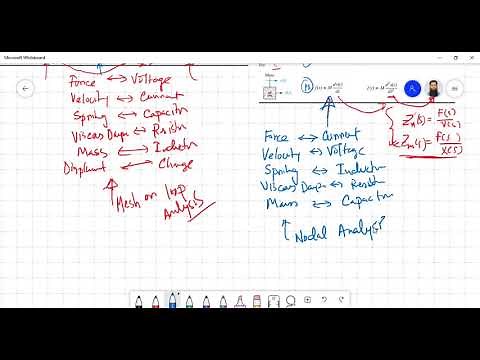 Microsoft Whiteboard
Force ↔ Voltage
Velocity ↔ Current
Spring ↔ Capacitor
Viscous Damper ↔ Resistor
Mass ↔ Inductor
Displacement ↔ Charge
Mesh or loop
Analysis
Mass
Zm(s) = F(s)/V(s)
Zm(s) = F(s)/X(s)
Force ↔ Current
Velocity ↔ Voltage
Spring ↔ Inductor
Viscous Damper ↔ Resistor
Mass ↔ Capacitor
Nodal Analysis